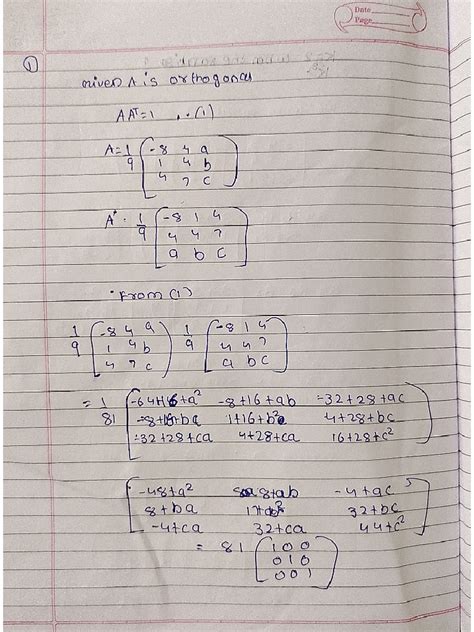 Date
Page
①
Given A is orthogonal
AAᵀ=1 ..(1)
A=1/9 [-8 4 a
1 4 b
4 7 c]
Aᵀ. 1/9 [-8 1 4
4 4 7
a b c]
from (1)
1/9 [-8 4 a 1/9 [-8 1 4
1 4 b 4 4 7
4 7 c] a b c]
= 1/81 [-64+16+a² -8+16+ab -32+28+ac
-8+16+ba 1+16+b² 4+28+bc
-32+28+ca 4+28+ca 16+28+c²]
[-48+a² 8+ab -4+ac
8+ba 17+b² 32+bc
-4+ca 32+ca 44+c²]
= 81 [1 0 0
0 1 0
0 0 1]